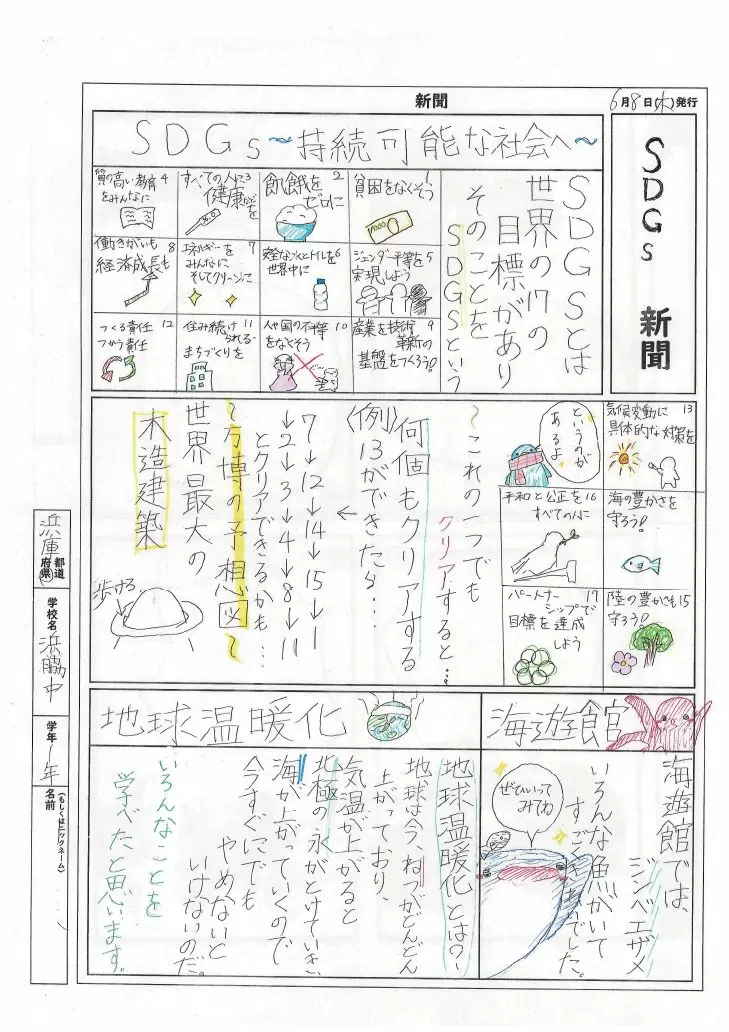 新聞
6月8日(水)発行
SDGs 新聞
SDGs～持続可能な社会へ～
SDGSとは
世界の17の
目標があり
そのことを
SDGSという
貧困をなくそう 1
飢餓を 2
ゼロに
すべての人に 3
健康などを
質の高い教育 4
をみんなに
ジェンダー平等を 5
実現しよう
安全な水とトイレを 6
世界中に
エネルギーを 7
みんなに
そしてクリーンに
働きがいも 8
経済成長も
産業を技術 9
革新の
基盤をつくろう!
人や国の不平等 10
をなくそう
住み続け 11
られる
まちづくりを
つくる責任 12
つかう責任
気候変動に 13
具体的な対策を
というのが
あるよ
海の豊かさを
守ろう!
平和と公正を 16
すべての人に
陸の豊かさも 15
守ろう!
パートナー 17
シップで
目標を達成
しよう
～これの一つでも
クリアすると…
何個もクリアする
〈例〉13ができたら…
↓
7→12→14→15→1
→2→3→4→8→11
とクリアできるかも…
～万博の予想図～
世界最大の
木造建築
歩ける
海遊館
海遊館では、
ジンベエザメ
いろんな魚がいて
すごくきれいでした。
ぜひいって
みてね
地球温暖化
地球温暖化とは?
地球は今、ねつがどんどん
上がっており、
気温が上がると
北極の氷がとけていき、
海が上がっていくので
今すぐにでも
やめないと
いけないのだ。
いろんなことを
学べたと思います。
兵庫 都道府県
学校名 浜脇中
学年 1年
名前
(もしくはニックネーム)